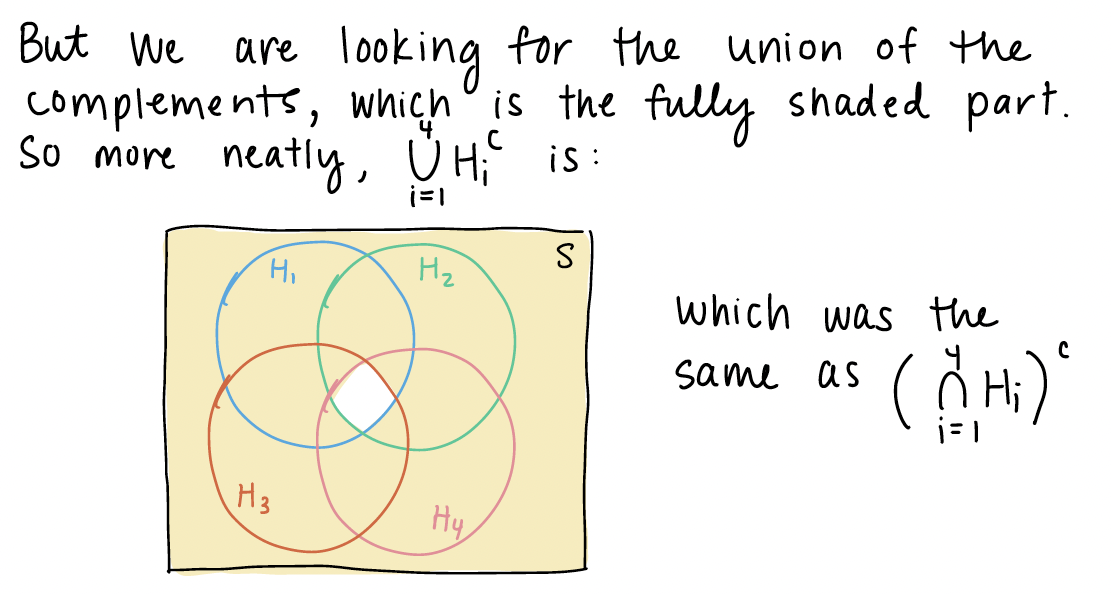 But we are looking for the union of the
complements, which is the fully shaded part.
So more neatly, ⋃_{i=1}^{4} H_i^c is:
S
H₁
H₂
H₃
H₄
which was the
same as (⋂_{i=1}^{4} H_i)^c